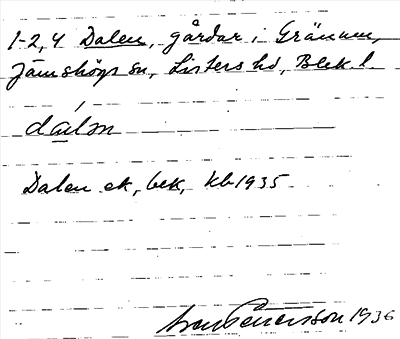 1-2, 4 Dalen, gårdar i Gränum,
Jämshögs sn, Listers hd, Blek. l.
dálən
Dalen ek, bek, kb 1935
Petersson 1936